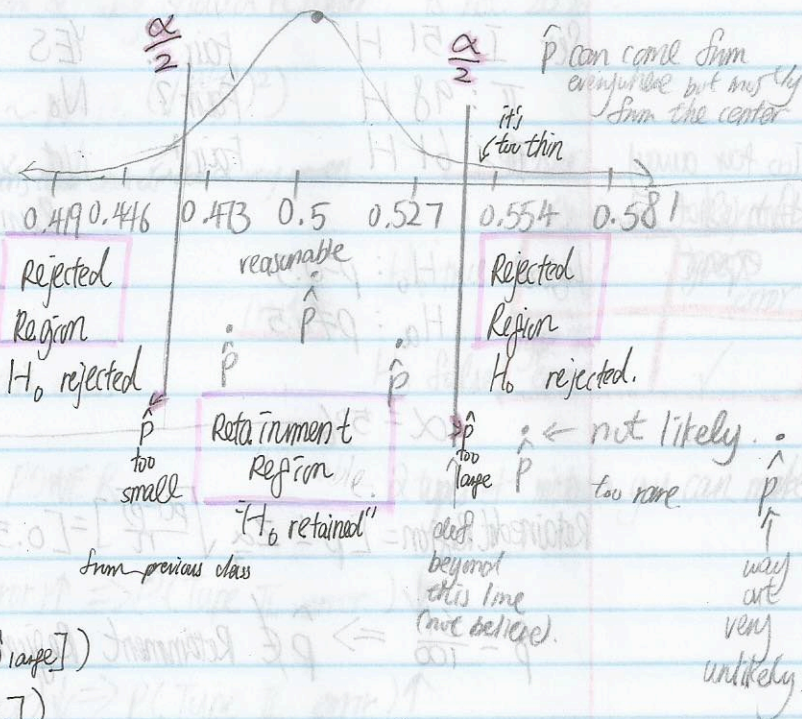 α/2
α/2
p̂ can come from
everywhere but mostly
from the center
it's
too thin
0.419 0.446 0.473 0.5 0.527 0.554 0.581
Rejected
Region
H₀ rejected
reasonable
p̂
p̂
p̂
Rejected
Region
H₀ rejected.
p̂
too
small
Retainment
Region
"H₀ retained"
from previous class
p̂
too
large
p̂
← not likely.
too rare
p̂
beyond
this line
(not believe).
way
out
very
unlikely.
large])
])